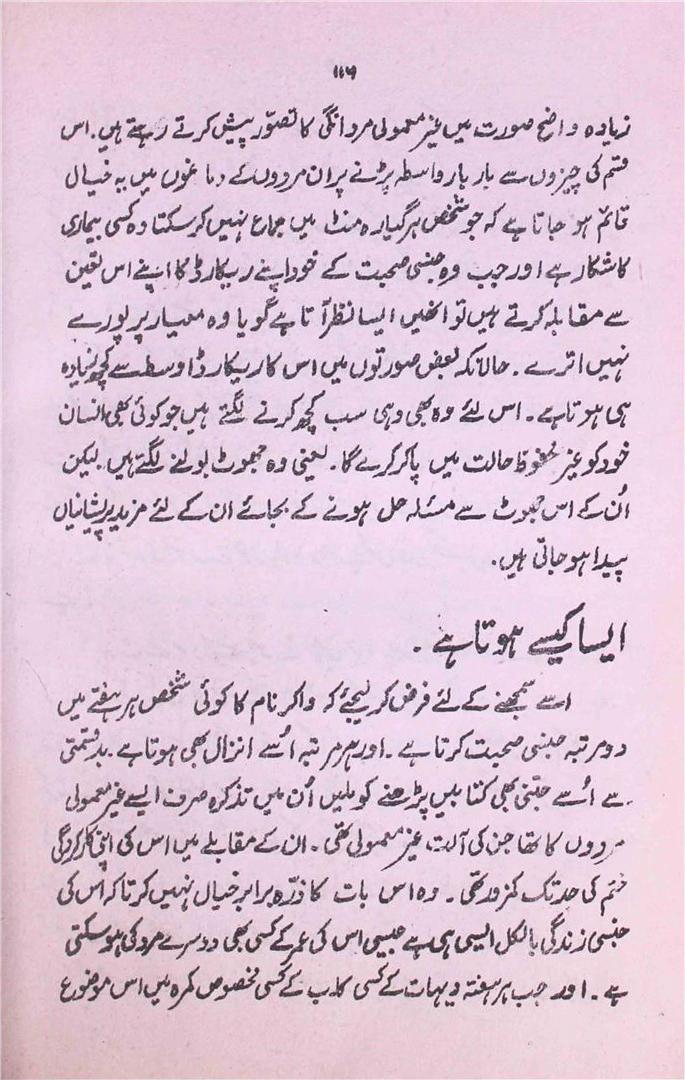 ۱۱۶
زیادہ واضح صورت میں غیر معمولی مردانگی کا تصوّر پیش کرتے رہتے ہیں. اس
قسم کی چیزوں سے بار بار واسطہ پڑنے پر ان مردوں کے دماغوں میں یہ خیال
قائم ہو جاتا ہے کہ جو شخص ہر گیارہ منٹ میں جماع نہیں کر سکتا وہ کسی بیماری
کا شکار ہے اور جب وہ جنسی صحبت کے خود اپنے ریکارڈ کا اپنے اس یقین
سے مقابلہ کرتے ہیں تو انھیں ایسا نظر آتا ہے گویا وہ معیار پر پورے
نہیں اترے۔ حالانکہ بعض صورتوں میں اس کا ریکارڈ اوسط سے کچھ زیادہ
ہی ہوتا ہے۔ اس لئے وہ بھی وہی سب کچھ کرنے لگتے ہیں جو کوئی بھی انسان
خود کو غیر محفوظ حالت میں پا کر کرے گا۔ یعنی وہ جھوٹ بولنے لگتے ہیں. لیکن
اُن کے اس جھوٹ سے مسئلہ حل ہونے کے بجائے ان کے لئے مزید پریشانیاں
پیدا ہو جاتی ہیں.
ایسا کیسے ہوتا ہے۔
اسے سمجھنے کے لئے فرض کر لیجئے کہ واکر نام کا کوئی شخص ہر ہفتے میں
دو مرتبہ جنسی صحبت کرتا ہے۔ اور ہر مرتبہ اُسے انزال بھی ہوتا ہے۔ بدقسمتی
سے اُسے جتنی بھی کتابیں پڑھنے کو ملیں اُن میں تذکرہ صرف ایسے غیر معمولی
مردوں کا تھا جن کی آلت غیر معمولی تھی۔ ان کے مقابلے میں اس کی اپنی کارکردگی
ختم کی حد تک کمزور تھی۔ وہ اس بات کا ذرّہ برابر خیال نہیں کرتا کہ اس کی
جنسی زندگی بالکل ایسی ہی ہے جیسی اس کی عمر کے کسی بھی دوسرے مرد کی ہو سکتی
ہے۔ اور جب ہر ہفتہ دیہات کے کسی کلب کے کسی مخصوص کمرہ میں اس موضوع